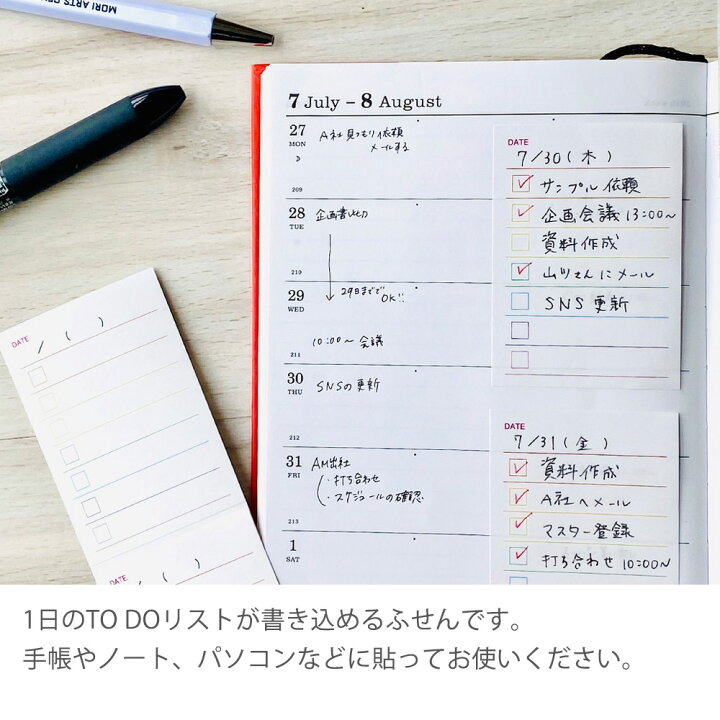 MORI ARTS
7 July – 8 August
27
MON
A社見つもり依頼
メールする
209
28
TUE
企画書〆切
210
29
WED
29日までで
OK!!
10:00〜会議
211
30
THU
SNSの更新
212
31
FRI
AM出社
・打ち合わせ
・スケジュールの確認
213
1
SAT
DATE
7/30(木)
サンプル依頼
企画会議 13:00〜
資料作成
山ツさんにメール
SNS更新
DATE
7/31(金)
資料作成
A社へメール
マスター登録
打ち合わせ 10:00〜
DATE
/ ( )
DATE
/ ( )
1日のTO DOリストが書き込めるふせんです。
手帳やノート、パソコンなどに貼ってお使いください。